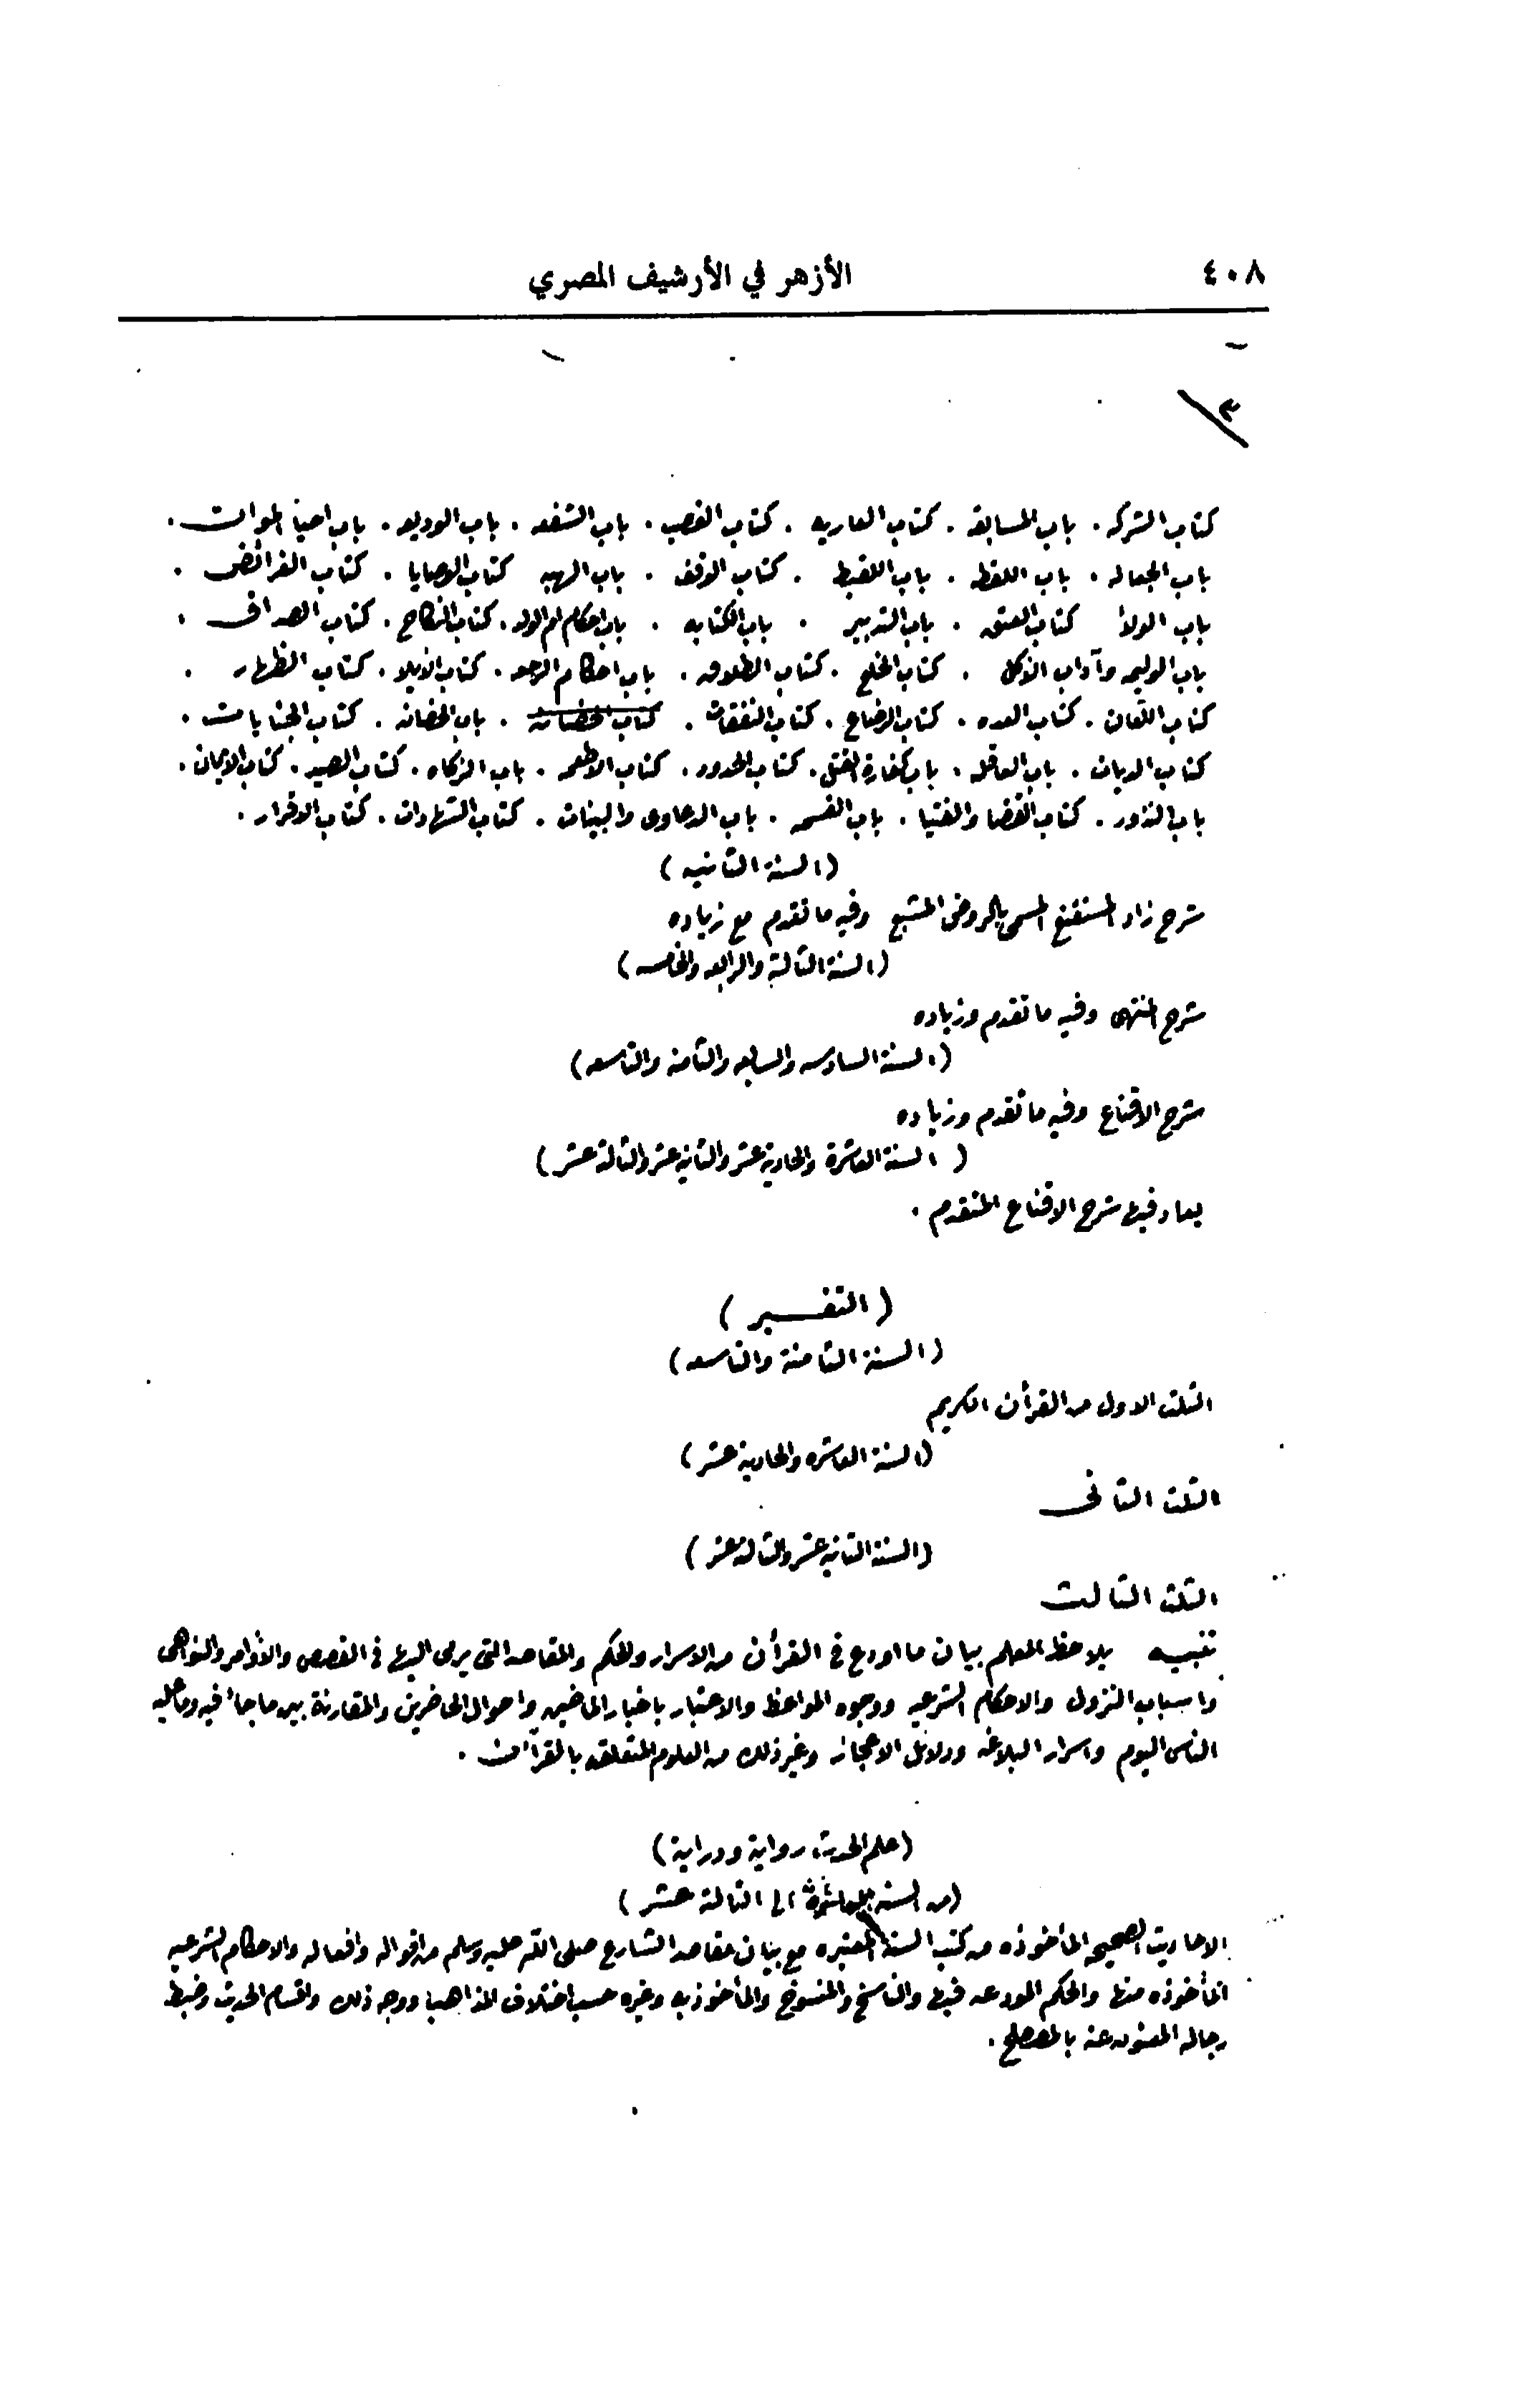 ٤٠٨
الأزهر في الأرشيف المصري
٣
كتاب الشركه . باب المسابقه . كتاب العاريه . كتاب الغصب . باب الشفعه . باب الوديعه . باب احيأ الموات .
باب الجعاله . باب اللقطه . باب اللقيط . كتاب الوقف . باب الهبه كتاب الوصايا . كتاب الفرائض .
باب الولأ كتاب العتق . باب التدبير . باب الكتابه . باب احكام ام الولد . كتاب النكاح . كتاب الصداق .
باب الوليمه وآداب الاكل . كتاب الخلع . كتاب الطلاق . باب احكام الرجعه . كتاب الايلا . كتاب الظهار .
كتاب اللعان . كتاب العده . كتاب الرضاع . كتاب النفقات . كتاب الحضانه . باب الحضانه . كتاب الجنايات .
كتاب الديات . باب العاقله . باب كفارة القتل . كتاب الحدود . كتاب الاطعمه . باب الزكاه . كتاب الصيد . كتاب الايمان .
باب النذور . كتاب القضا والفتيا . باب القسمه . باب الدعاوى والبينات . كتاب الشهادات . كتاب الاقرار .
(السنة الثانيه)
شرح زاد المستقنع المسمى بالروض المشبع وفيه ما تقدم مع زياده
(السنة الثالثة والرابعه والخامسه)
شرح المنتهى وفيه ما تقدم وزياده
(السنة السادسه والسابعه والثامنه والتاسعه)
شرح الاقناع وفيه ما تقدم وزياده
(السنة العاشرة والحادية عشر والثانية عشر والثالثة عشر)
يعاد فيها شرح الاقناع المتقدم .
(التفسير)
(السنة الثامنة والتاسعه)
الثلث الاول من القرأن الكريم
(السنة العاشره والحادية عشر)
الثلث الثانى
(السنة الثانية عشر والثالثة عشر)
الثلث الثالث
تنبيه يلاحظ المعلم بيان ما اودع فى القرأن من الاسرار والحكم والمقاصد التى يرمى اليها فى القصص والأوامر والنواهى
واسباب النزول والاحكام الشرعيه ووجوه المواعظ والاعتبار باخبار الماضين واحوال الحاضرين والمقارنة بين ما جأ فيه وما عليه
الناس اليوم واسرار البلاغه ودلائل الاعجاز وغير ذلك من العلوم المتعلقه بالقرآن .
(علم الحديث رواية ودراية)
(من السنه العاشرة الى الثالثة عشر)
الاحاديث الصحيحه المأخوذه من كتب السنة المعتبره مع بيان مقاصد الشارع صلى الله عليه وسلم من اقواله وافعاله والاحكام الشرعيه
المأخوذه منها والحكم المودعه فيها والناسخ والمنسوخ والمأخوذ به وغيره حسب اختلاف المذاهب ووجه ذلك واقسام الحديث وضبط
رجاله المعنون عنه بالمصطلح .